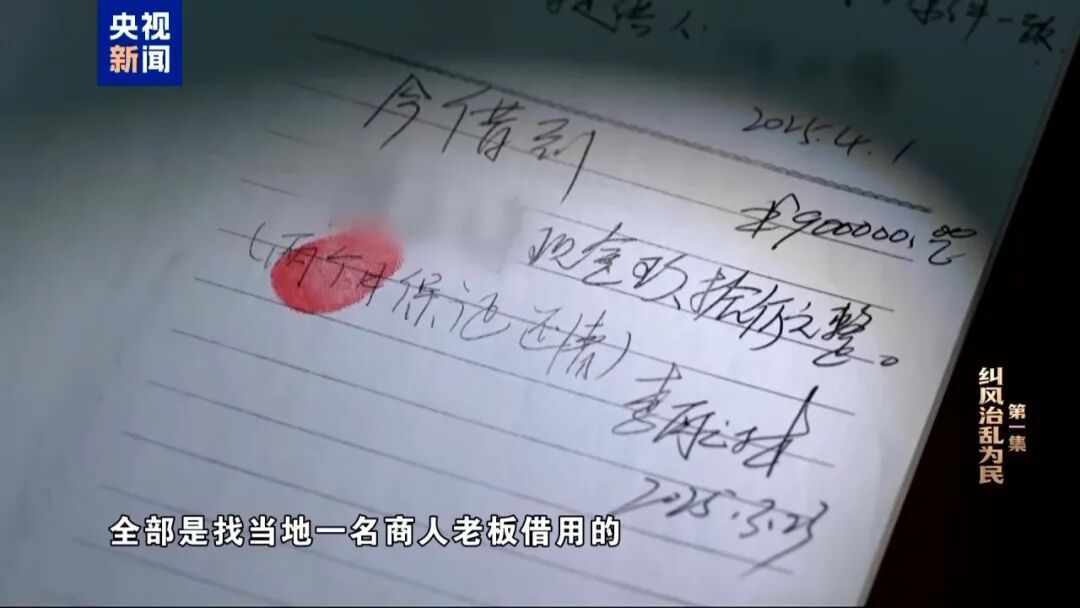 央视
新闻
提供人:
件一致
2025.4.1
今借到
¥900000.
现金玖拾万元整。
(两个月保证还清)
2025.3.23
第一集
纠风治乱为民
全部是找当地一名商人老板借用的